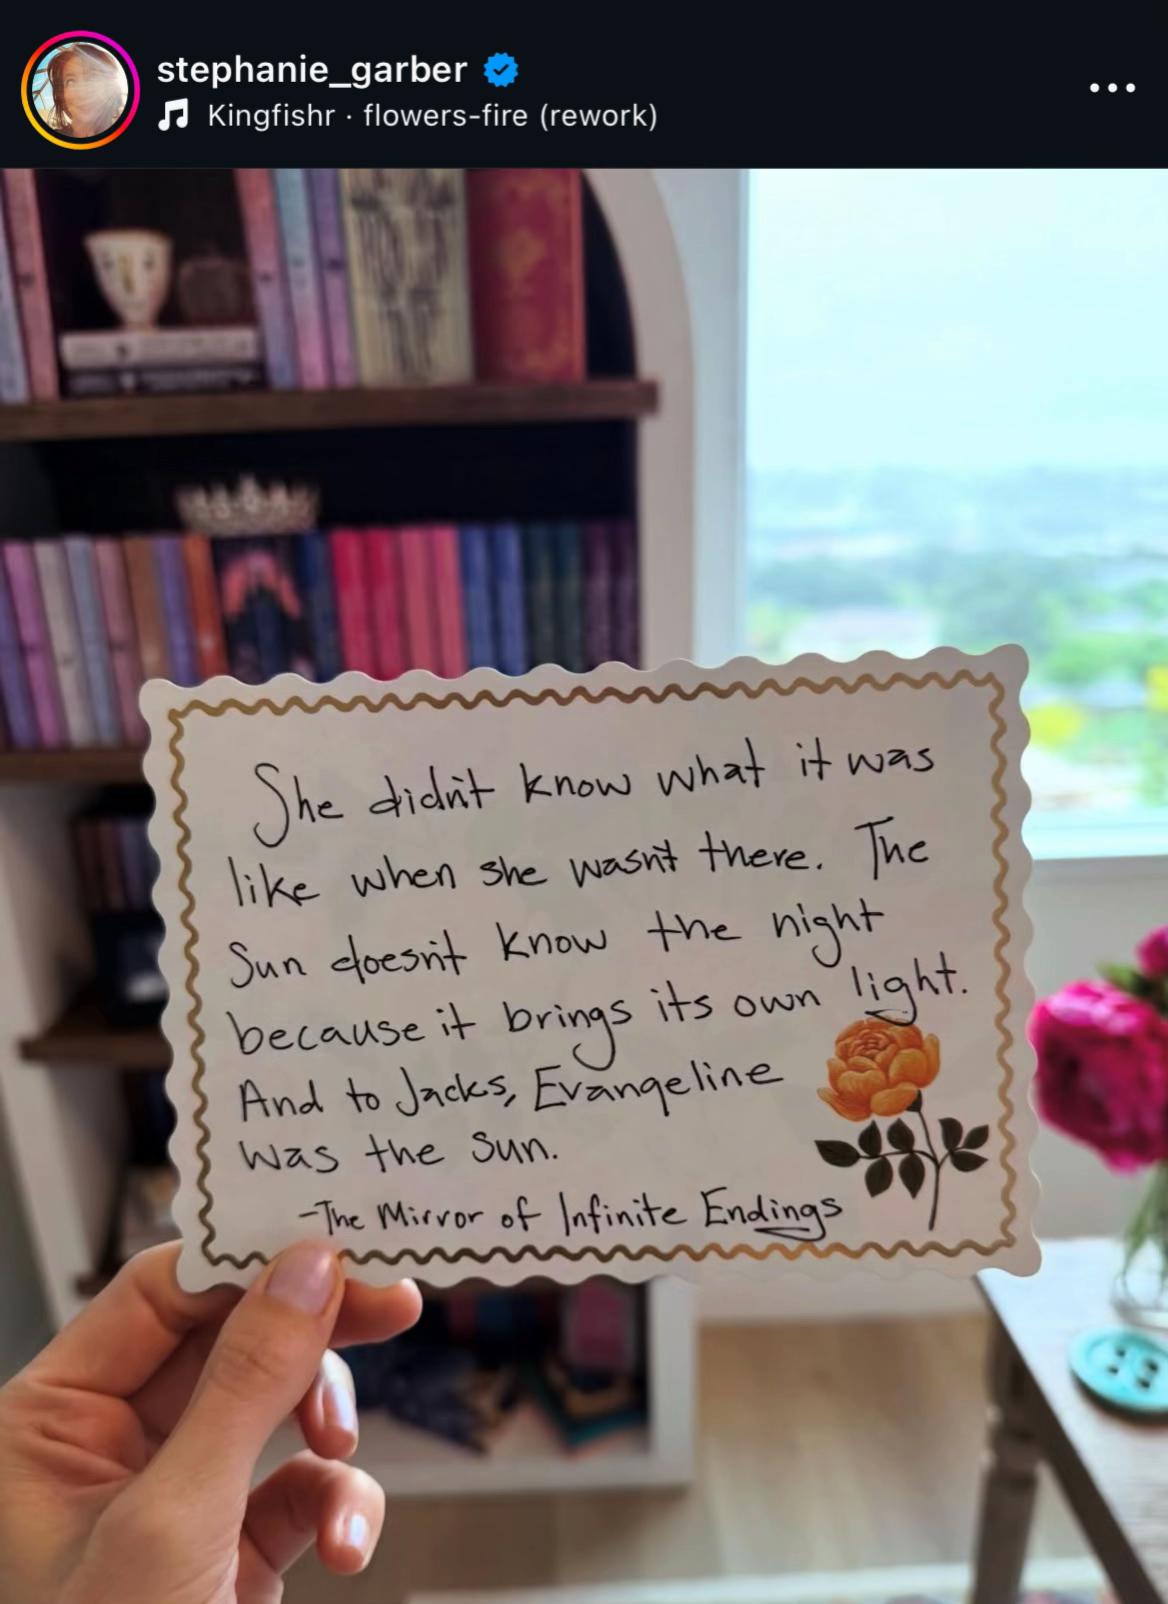 stephanie_garber
Kingfishr · flowers-fire (rework)
She didn't know what it was
like when she wasn't there. The
Sun doesn't know the night
because it brings its own light.
And to Jacks, Evangeline
was the Sun.
-The Mirror of Infinite Endings